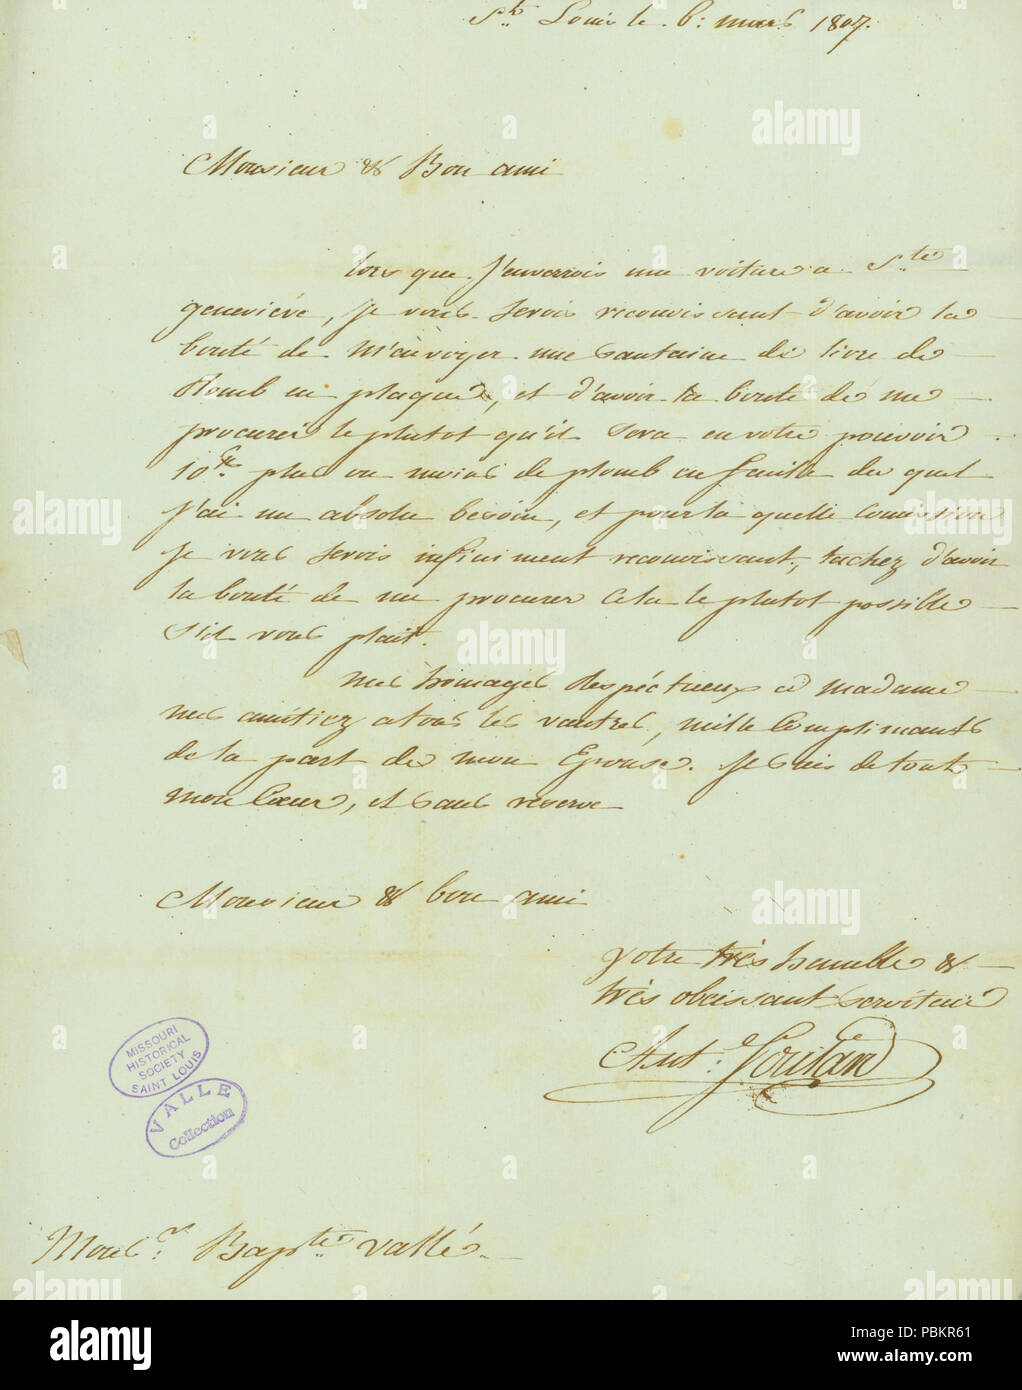 St. Louis le 6: mars 1807.
Monsieur & Bon ami
lors que J'enverrois une voiture a Ste
geneviéve, Je vous serois reconoissant d'avoir la
bonté de M'anvoyer une santaine de livre de
Plomb en plaque, et d'avoir la bonté de me
procurer le plutot qu'il sera en votre pouvoir
10 plus ou moins de plomb en feuille du quel
J'ai un absolu besoin, et pour la quelle comission
Je vous serois infiniment reconoissant, tachez d'avoir
la bonté de me procurer cela le plutot possible
s'il vous plait.
mes homages Respéctueux a madame
mes amitiez a tous les vautres, mille Complimants
de la part de mon Epouse. Je suis de tout
mon Cœur, et sans reserve
Monsieur & bon ami
votre très humble &
très obeissant serviteur
Ant. Soulard
MISSOURI
HISTORICAL
SOCIETY
SAINT LOUIS
VALLE
Collection
Monsr. Bapte vallé.
alamy
a
alamy stock photo
PBKR61
www.alamy.com